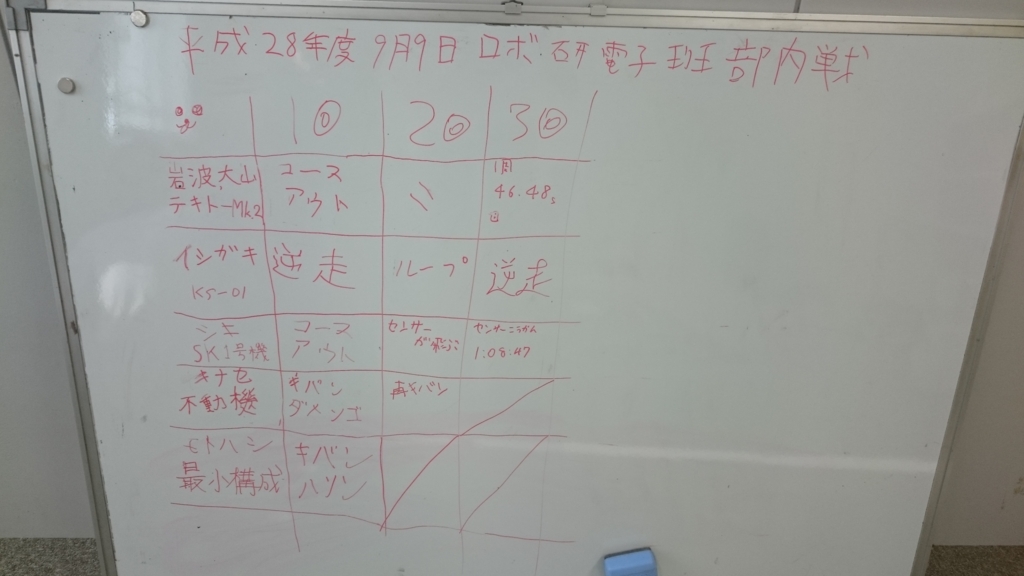 平成28年度 9月9日 ロボ研電子班部内戦
1回 2回 3回
岩波、大山
テキトーMk.2
コース
アウト
〃
1周
46.48s
イシガキ
KS-01
逆走
ループ
逆走
シキ
SK1号機
コース
アウト
センサー
が飛ぶ
センサーこうかん
1:08:47
キナセ
不動機
キバン
ダメンゴ
再キバン
モトハシ
最小構成
キバン
ハソン